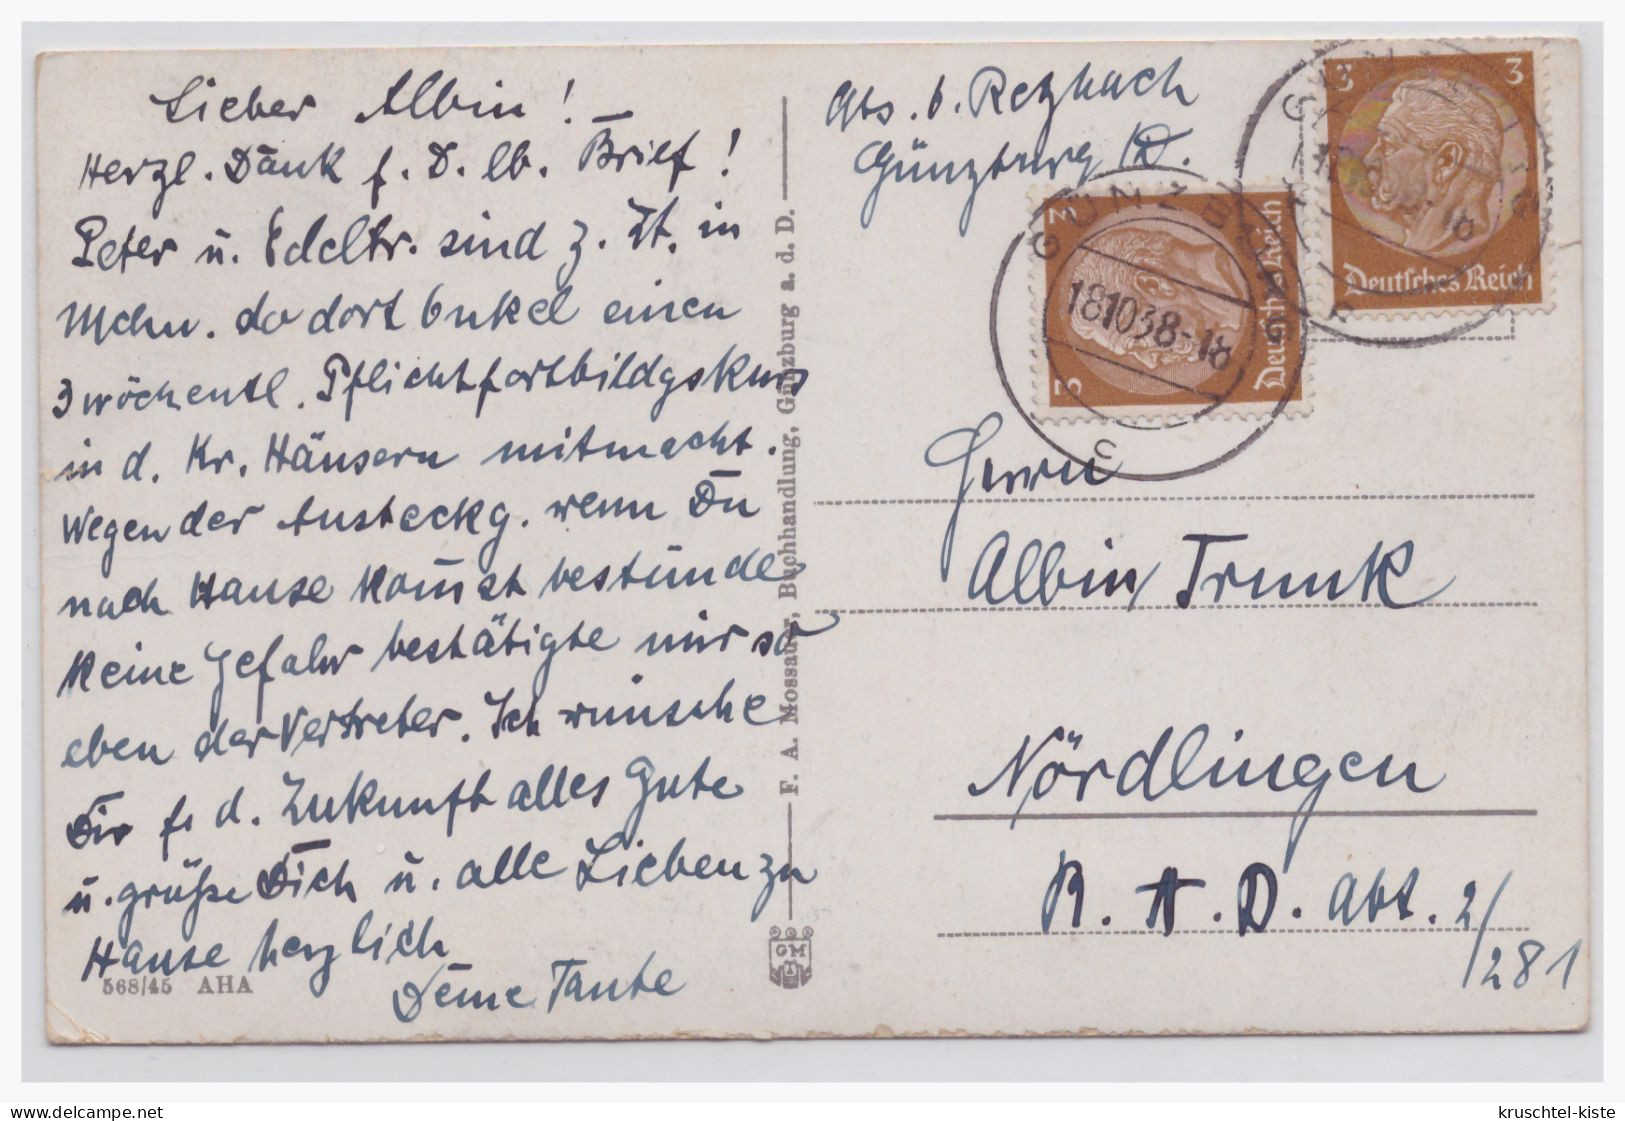 Lieber Albin!
Herzl. Dank f. D. lb. Brief!
Peter u. Edeltr. sind z. Zt. in
Mchn. da dort Onkel einen
3 wöchentl. Pflichtfortbildgskurs
in d. Kr. Häusern mitmacht.
Wegen der Ansteckg. wenn Du
nach Hause kom̄st bestünde
keine Gefahr bestätigte mir so
eben der Vertreter. Ich wünsche
Dir f. d. Zukunft alles Gute
u. grüße Dich u. alle Lieben zu
Hause herzlich
Deine Tante
568/45 AHA
F. A. Mossauer, Buchhandlung, Günzburg a. d. D.
GM
Abs. b. Rezbach
Günzburg D.
3 3
Deutsches Reich
3 3
Deutsches Reich
GÜNZBURG
18.10.38-18
c
Herrn
Albin Trunk
Nördlingen
R. A. D. Abt. 2/
/281
delcampe.net
kruschtel-kiste